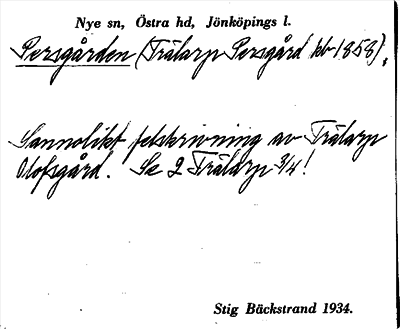 Nye sn, Östra hd, Jönköpings l.
Persgården (Trälarp Persgård kb 1858),
Sannolikt felskrivning av Trälarp
Olofsgård. Se 2 Trälarp 3/4!
Stig Bäckstrand 1934.